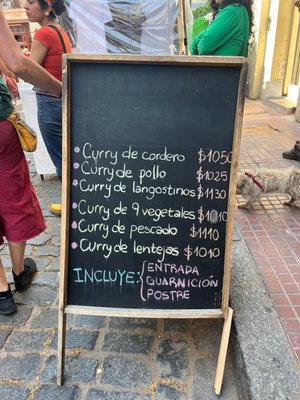 Curry de cordero $1050
Curry de pollo $1025
Curry de langostinos $1130
Curry de 9 vegetales $1010
Curry de pescado $1110
Curry de lentejas $1010
INCLUYE: ENTRADA
GUARNICIÓN
POSTRE